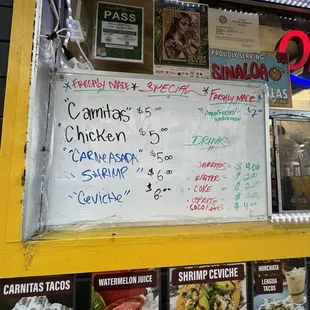 PASS
PROUDLY SERVING
SINALOA
*FRESHLY MADE* SPECIAL *FRESHLY MADE*
"Carnitas" $5.00
Chicken $5.00
"CARNE ASADA" $5.00
"SHRIMP" $6.00
"Ceviche" $8.00
DRINKS
JARRITOS $4.00
WATER $2.00
COKE $2.00
SPRITE $2.00
$4.00
CARNITAS TACOS
WATERMELON JUICE
SHRIMP CEVICHE
HORCHATA
LENGUA
TACOS